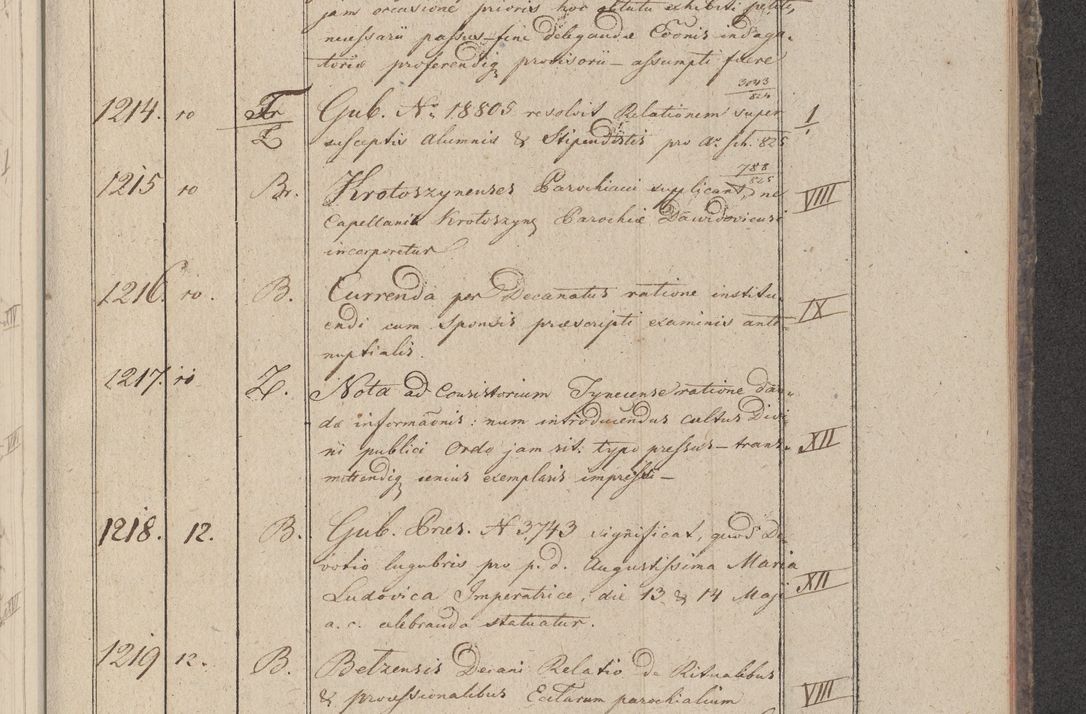 jam occasione prioris hoc obtutu exhibiti petiti,
necessarii passus fine delegandæ Coonis indaga-
toriæ proferendiq provisorii assumpti fuere
3043
824
1214. 10 Fr. Gub. No. 18805 resolvit Relationem super 1
Z susceptis Alumnis & Stipendistis pro Ao. sch. 825
788
825
1215 10 Br. Krotoszynenses Parochiani supplicant, ne VIII
Capellania Krotoszyn Parochiæ Dawidoviensi
incorporetur
1216. 10. B. Currenda per Decanatus ratione institu-
endi cum Sponsis præscripti examinis ante- IX
nuptialis.
1217. 10 Z. Nota ad Consistorium Tynecense ratione dan-
dæ informaonis: num introducendus cultus Divi-
ni publici Ordo jam sit typo pressus – trans- XII
mittendiq unius exemplaris impressi –
1218. 12. B. Gub. Præs. N 3743 significat, quod De-
votio lugubris pro p. d. Augustissima Maria
Ludovica Imperatrice, die 13 & 14 Maji XII
a. c. celebranda statuatur.
1219 12. B. Betzensis Decani Relatio de Ritualibus
& processionalibus Ecclarum parochialium VIII